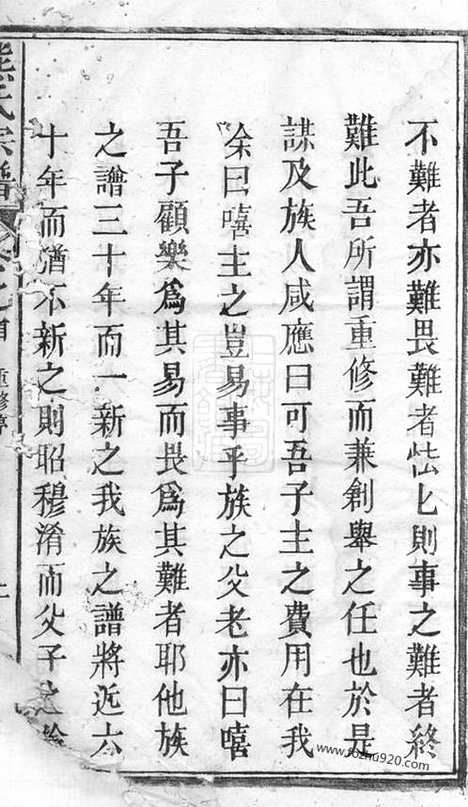 不難者亦難畏難者怯怯則事之難者終
難此吾所謂重修而兼創舉之任也於是
謀及族人咸應曰可吾子主之費用在我
余曰嘻主之豈易事乎族之父老亦曰嘻
吾子顧樂爲其易而畏爲其難者耶他族
之譜三十年而一新之我族之譜將近六
十年而猶不新之則昭穆淆而父子之
氏宗譜
重修序
www.fozhu920.com